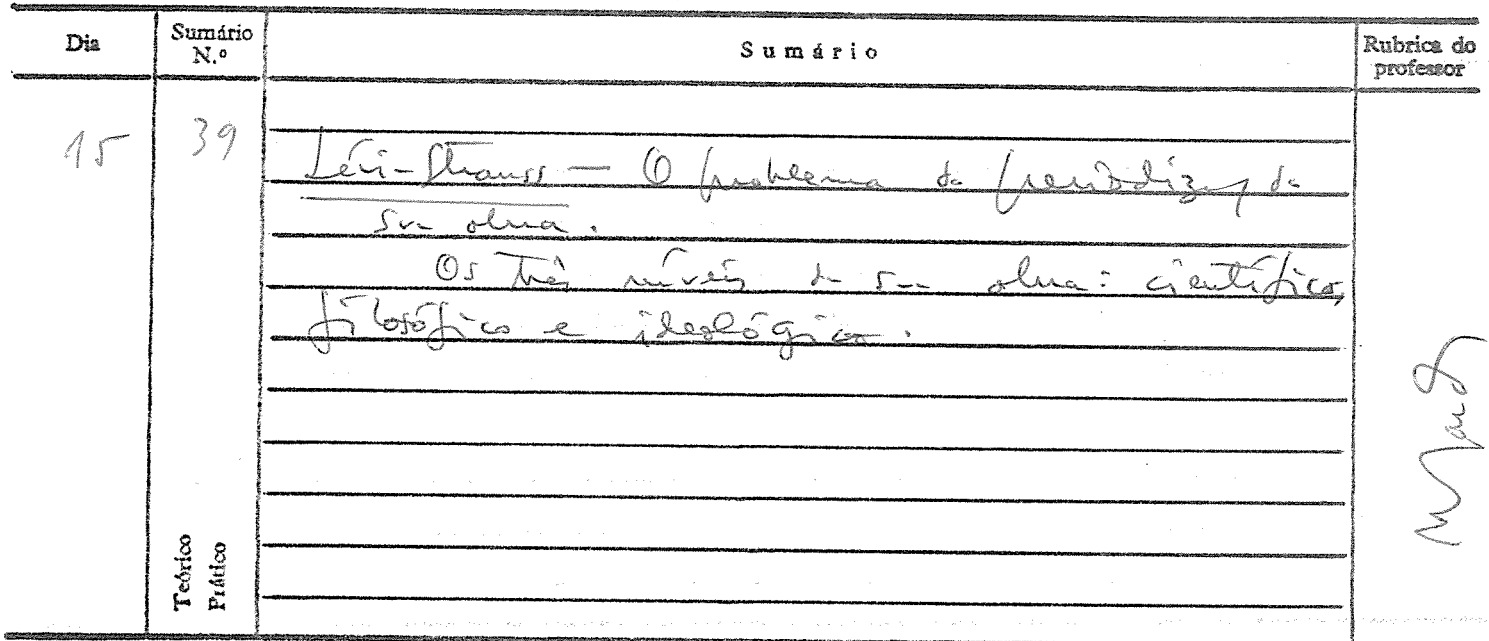 Dia
Sumário N.º
Sumário
Rubrica do professor
15
39
Lévi-Strauss — O problema da periodização da
sua obra.
Os três níveis da sua obra: científico,
filosófico e ideológico.
Teórico
Prático